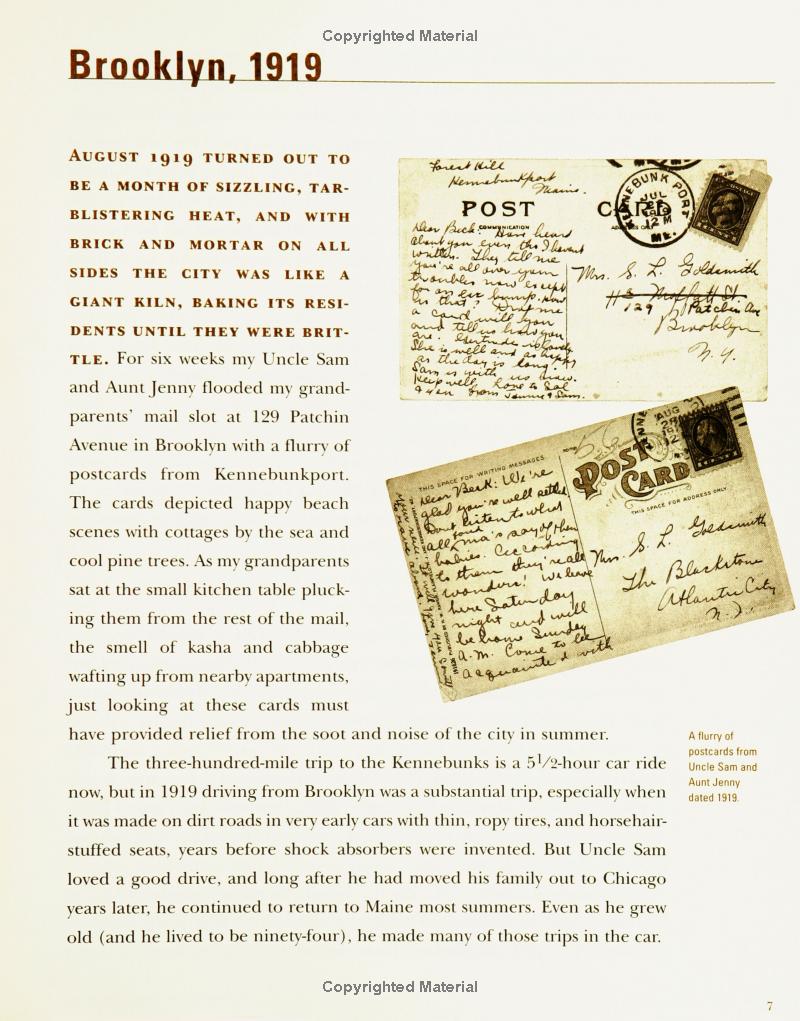 Copyrighted Material
Brooklyn, 1919
AUGUST 1919 TURNED OUT TO
BE A MONTH OF SIZZLING, TAR-
BLISTERING HEAT, AND WITH
BRICK AND MORTAR ON ALL
SIDES THE CITY WAS LIKE A
GIANT KILN, BAKING ITS RESI-
DENTS UNTIL THEY WERE BRIT-
TLE. For six weeks my Uncle Sam
and Aunt Jenny flooded my grand-
parents' mail slot at 129 Patchin
Avenue in Brooklyn with a flurry of
postcards from Kennebunkport.
The cards depicted happy beach
scenes with cottages by the sea and
cool pine trees. As my grandparents
sat at the small kitchen table pluck-
ing them from the rest of the mail,
the smell of kasha and cabbage
wafting up from nearby apartments,
just looking at these cards must
have provided relief from the soot and noise of the city in summer.
The three-hundred-mile trip to the Kennebunks is a 5½-hour car ride
now, but in 1919 driving from Brooklyn was a substantial trip, especially when
it was made on dirt roads in very early cars with thin, ropy tires, and horsehair-
stuffed seats, years before shock absorbers were invented. But Uncle Sam
loved a good drive, and long after he had moved his family out to Chicago
years later, he continued to return to Maine most summers. Even as he grew
old (and he lived to be ninety-four), he made many of those trips in the car.
Forest Hill
Kennebunkport
Maine.
POST
COMMUNICATION
KENNEBUNK PORT
JUL
12 M
ME.
Dear Beck: Have heard
about you even tho I haven't
written. They tell me
you're all over your
troubles now except
for an
is that? Drop me
a card will you
and tell us how you
are. Gertrude is lovely
She is well and as happy
as the day is long.
Sam is with us now.
Keep well, love to Sal
from Jennie & Sam.
Mrs. S. L. Goldsmith
129 Patchin Ave
Brooklyn
N. Y.
THIS SPACE FOR WRITING MESSAGES
POST
CARD
THIS SPACE FOR ADDRESS ONLY
AUG
Dear Beck: We're
glad you're well settled
Don't listen to what
all fond ma's say of their
babies. According
to them they're all
wonders! We leave
here Saturday
night and will
be home Sunday
A.M. Come to be
acquainted with
Mrs. S. L. Goldsmith
The Blackstone
Atlantic City
N. J.
A flurry of
postcards from
Uncle Sam and
Aunt Jenny
dated 1919.
Copyrighted Material
7